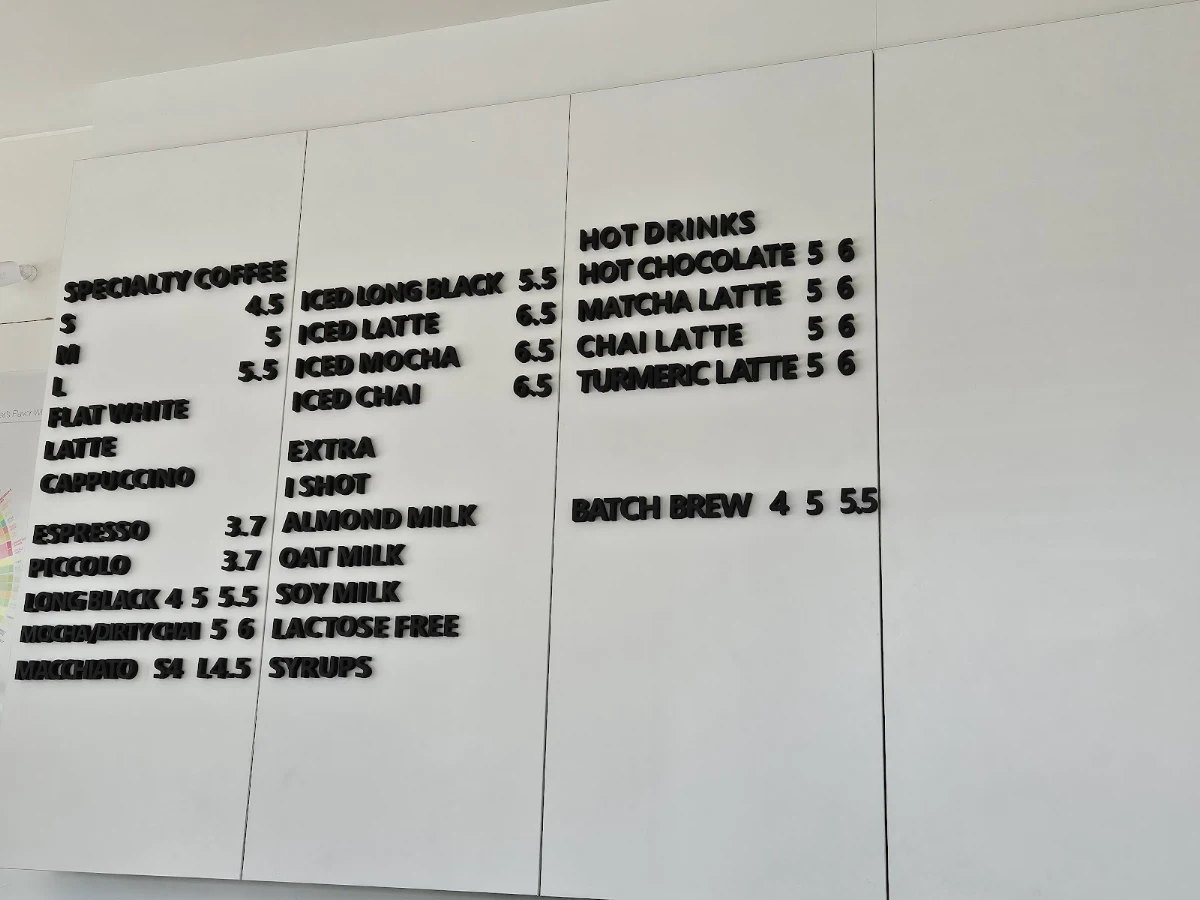 SPECIALTY COFFEE
S 4.5
M 5
L 5.5
FLAT WHITE
LATTE
CAPPUCCINO
ESPRESSO 3.7
PICCOLO 3.7
LONG BLACK 4 5 5.5
MOCHA/DIRTY CHAI 5 6
MACCHIATO S4 L4.5
ICED LONG BLACK 5.5
ICED LATTE 6.5
ICED MOCHA 6.5
ICED CHAI 6.5
EXTRA
I SHOT
ALMOND MILK
OAT MILK
SOY MILK
LACTOSE FREE
SYRUPS
HOT DRINKS
HOT CHOCOLATE 5 6
MATCHA LATTE 5 6
CHAI LATTE 5 6
TURMERIC LATTE 5 6
BATCH BREW 4 5 5.5